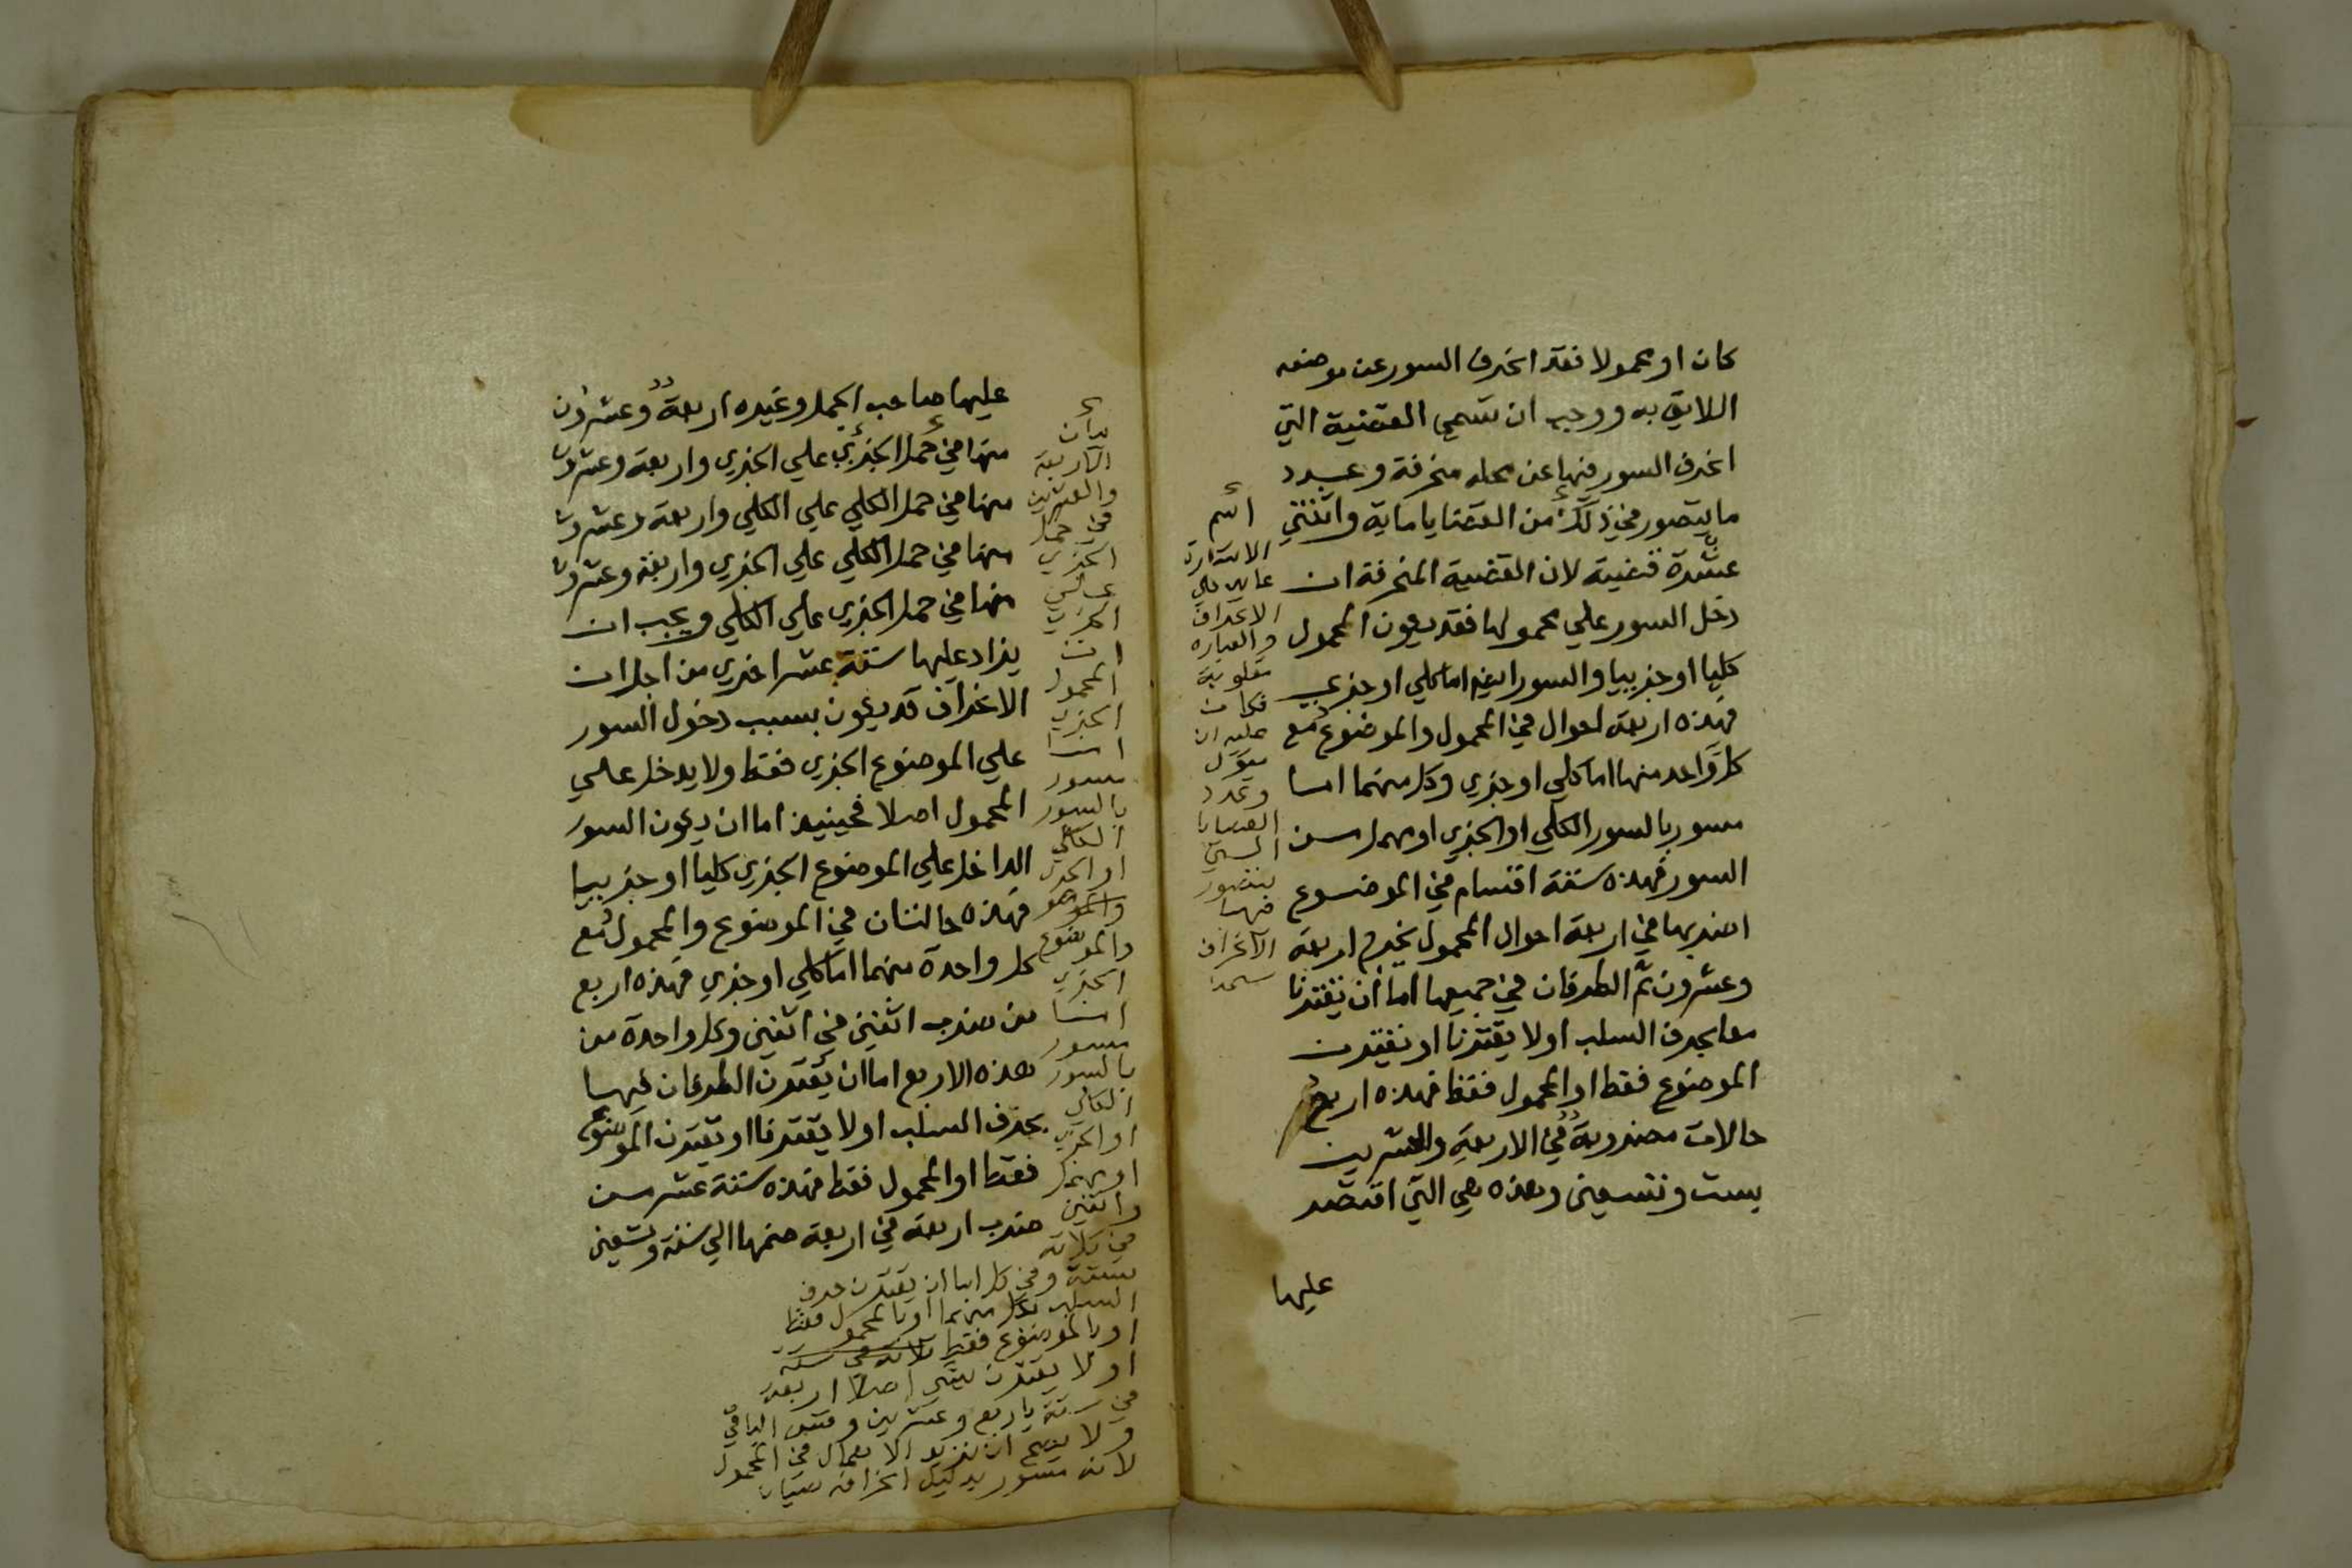 كان او محمولا فقد انحرف السور عن موضعه
اللايق به ووجب ان تسمي القضية التي
انحرف السور فيها عن محله منحرفة وعدد
ما يتصور في ذلك من القضايا ماية واثنتي
عشرة قضية لان القضية المنحرفة ان
دخل السور علي محمولها فقد يكون المحمول
كليا او جزييا والسور ايضا اما كلي او جزي
فهذه اربعة احوال في المحمول والموضوع مع
كل واحد منها اما كلي او جزي وكل منهما اما
مسور بالسور الكلي او الجزي او مهمل من
السور فهذه ستة اقسام في الموضوع
اضربها في اربعة احوال المحمول يخرج اربعة
وعشرون ثم الطرفان في جميعها اما ان يقترنا
معا بحرف السلب او لا يقترنا او يقترن
الموضوع فقط او المحمول فقط فهذه اربع
حالات مضروبة في الاربعة والعشرين
بست وتسعين وهذه هي التي اقتصر
عليها
اسم
الاشارة
عايد علي
الانحراف
والعباره
مقلوبة
فكان
عليه ان
يقول
وعدد
القضايا
التي
يتصور
فيها
الانحراف
عليها صاحب الجمل وغيره اربعة وعشرون
منها في حمل الجزي علي الجزي واربعة وعشرون
منها في حمل الكلي علي الكلي واربعة وعشرون
منها في حمل الكلي علي الجزي واربعة وعشرون
منها في حمل الجزي علي الكلي ويجب ان
يزاد عليها ستة عشر اخري من اجل ان
الانحراف قد يكون بسبب دخول السور
علي الموضوع الجزي فقط ولا يدخل علي
المحمول اصلا فحينيذ اما ان يكون السور
الداخل علي الموضوع الجزي كليا او جزييا
فهذه حالتان في الموضوع والمحمول مع
كل واحدة منهما اما كلي او جزي فهذه اربع
من ضرب اثنين في اثنين وكل واحدة من
هذه الاربع اما ان يقترن الطرفان فيها
بحرف السلب او لا يقترنا او يقترن الموضوع
فقط او المحمول فقط فهذه ستة عشر من
ضرب اربعة في اربعة ضمها الي ستة وتسعين
بدان
الاربعة
والعشرين
في حمل
الجزي
علي
الجزي
ان
المحمول
الجزي
اما
مسور
بالسور
الكلي
او الجزي
والموضو
والموضوع
الجزي
اما
مسور
بالسور
الكلي
او الجزي
او مهمل
واثنين
في ثلاثة
بستة وفي كل اما ان يقترن حرف
السلب بكل منهما او بالمحمول فقط
او بالموضوع فقط ثلاثة في ستة
او لا يقترن بشي اصلا اربعة
في ستة باربع وعشرين وقس الباقي
ولا يصح ان نزيد الاهمال في المحمول
لانه مسور بدليل انحرافه